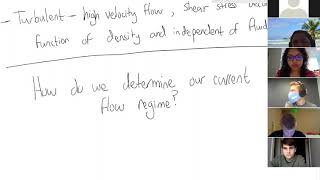 - Turbulent - high velocity flow, shear stress
function of density and independent of fluid
How do we determine our current
flow regime?